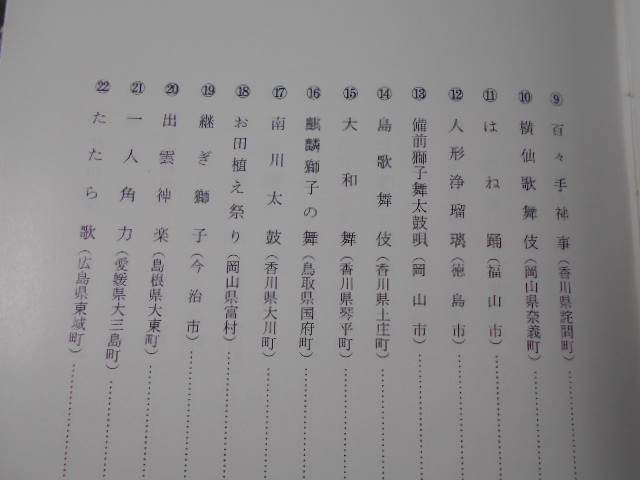 ⑨ 百々手神事（香川県詫間町）
⑩ 横仙歌舞伎（岡山県奈義町）
⑪ はね踊（福山市）
⑫ 人形浄瑠璃（徳島市）
⑬ 備前獅子舞太鼓唄（岡山市）
⑭ 島歌舞伎（香川県土庄町）
⑮ 大和舞（香川県琴平町）
⑯ 麒麟獅子の舞（鳥取県国府町）
⑰ 南川太鼓（香川県大川町）
⑱ お田植え祭り（岡山県富村）
⑲ 継ぎ獅子（今治市）
⑳ 出雲神楽（島根県大東町）
㉑ 一人角力（愛媛県大三島町）
㉒ たたら歌（広島県東城町）